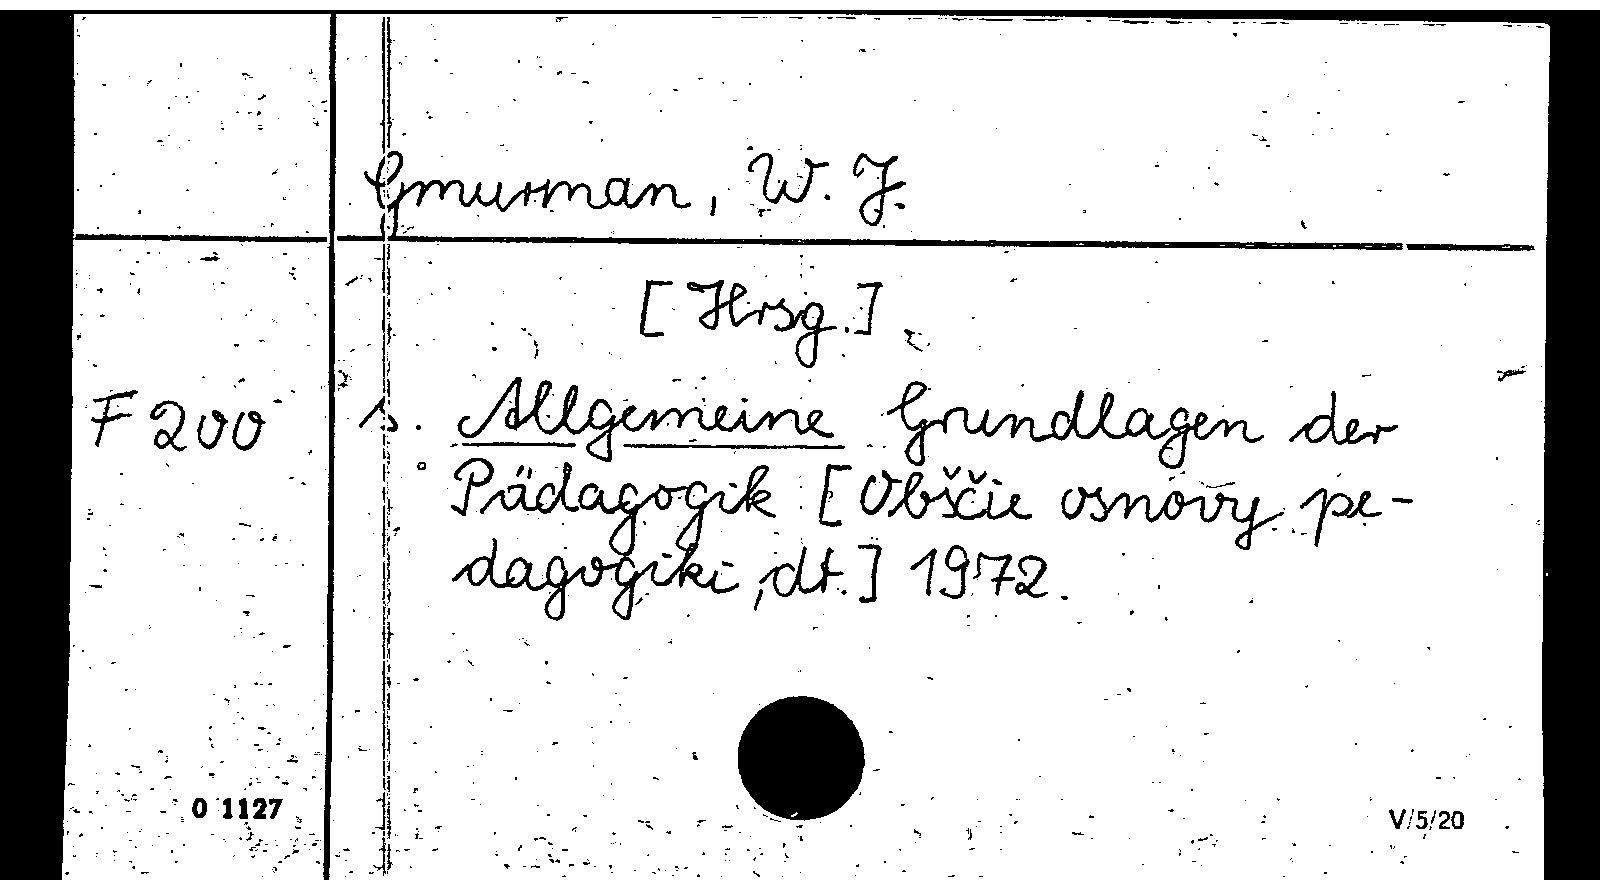 Gmurman, W. J.
[Hrsg.]
F 200 s. Allgemeine Grundlagen der
Pädagogik [Obščie osnovy pe-
dagogiki, dt.] 1972.
O 1127
V/5/20